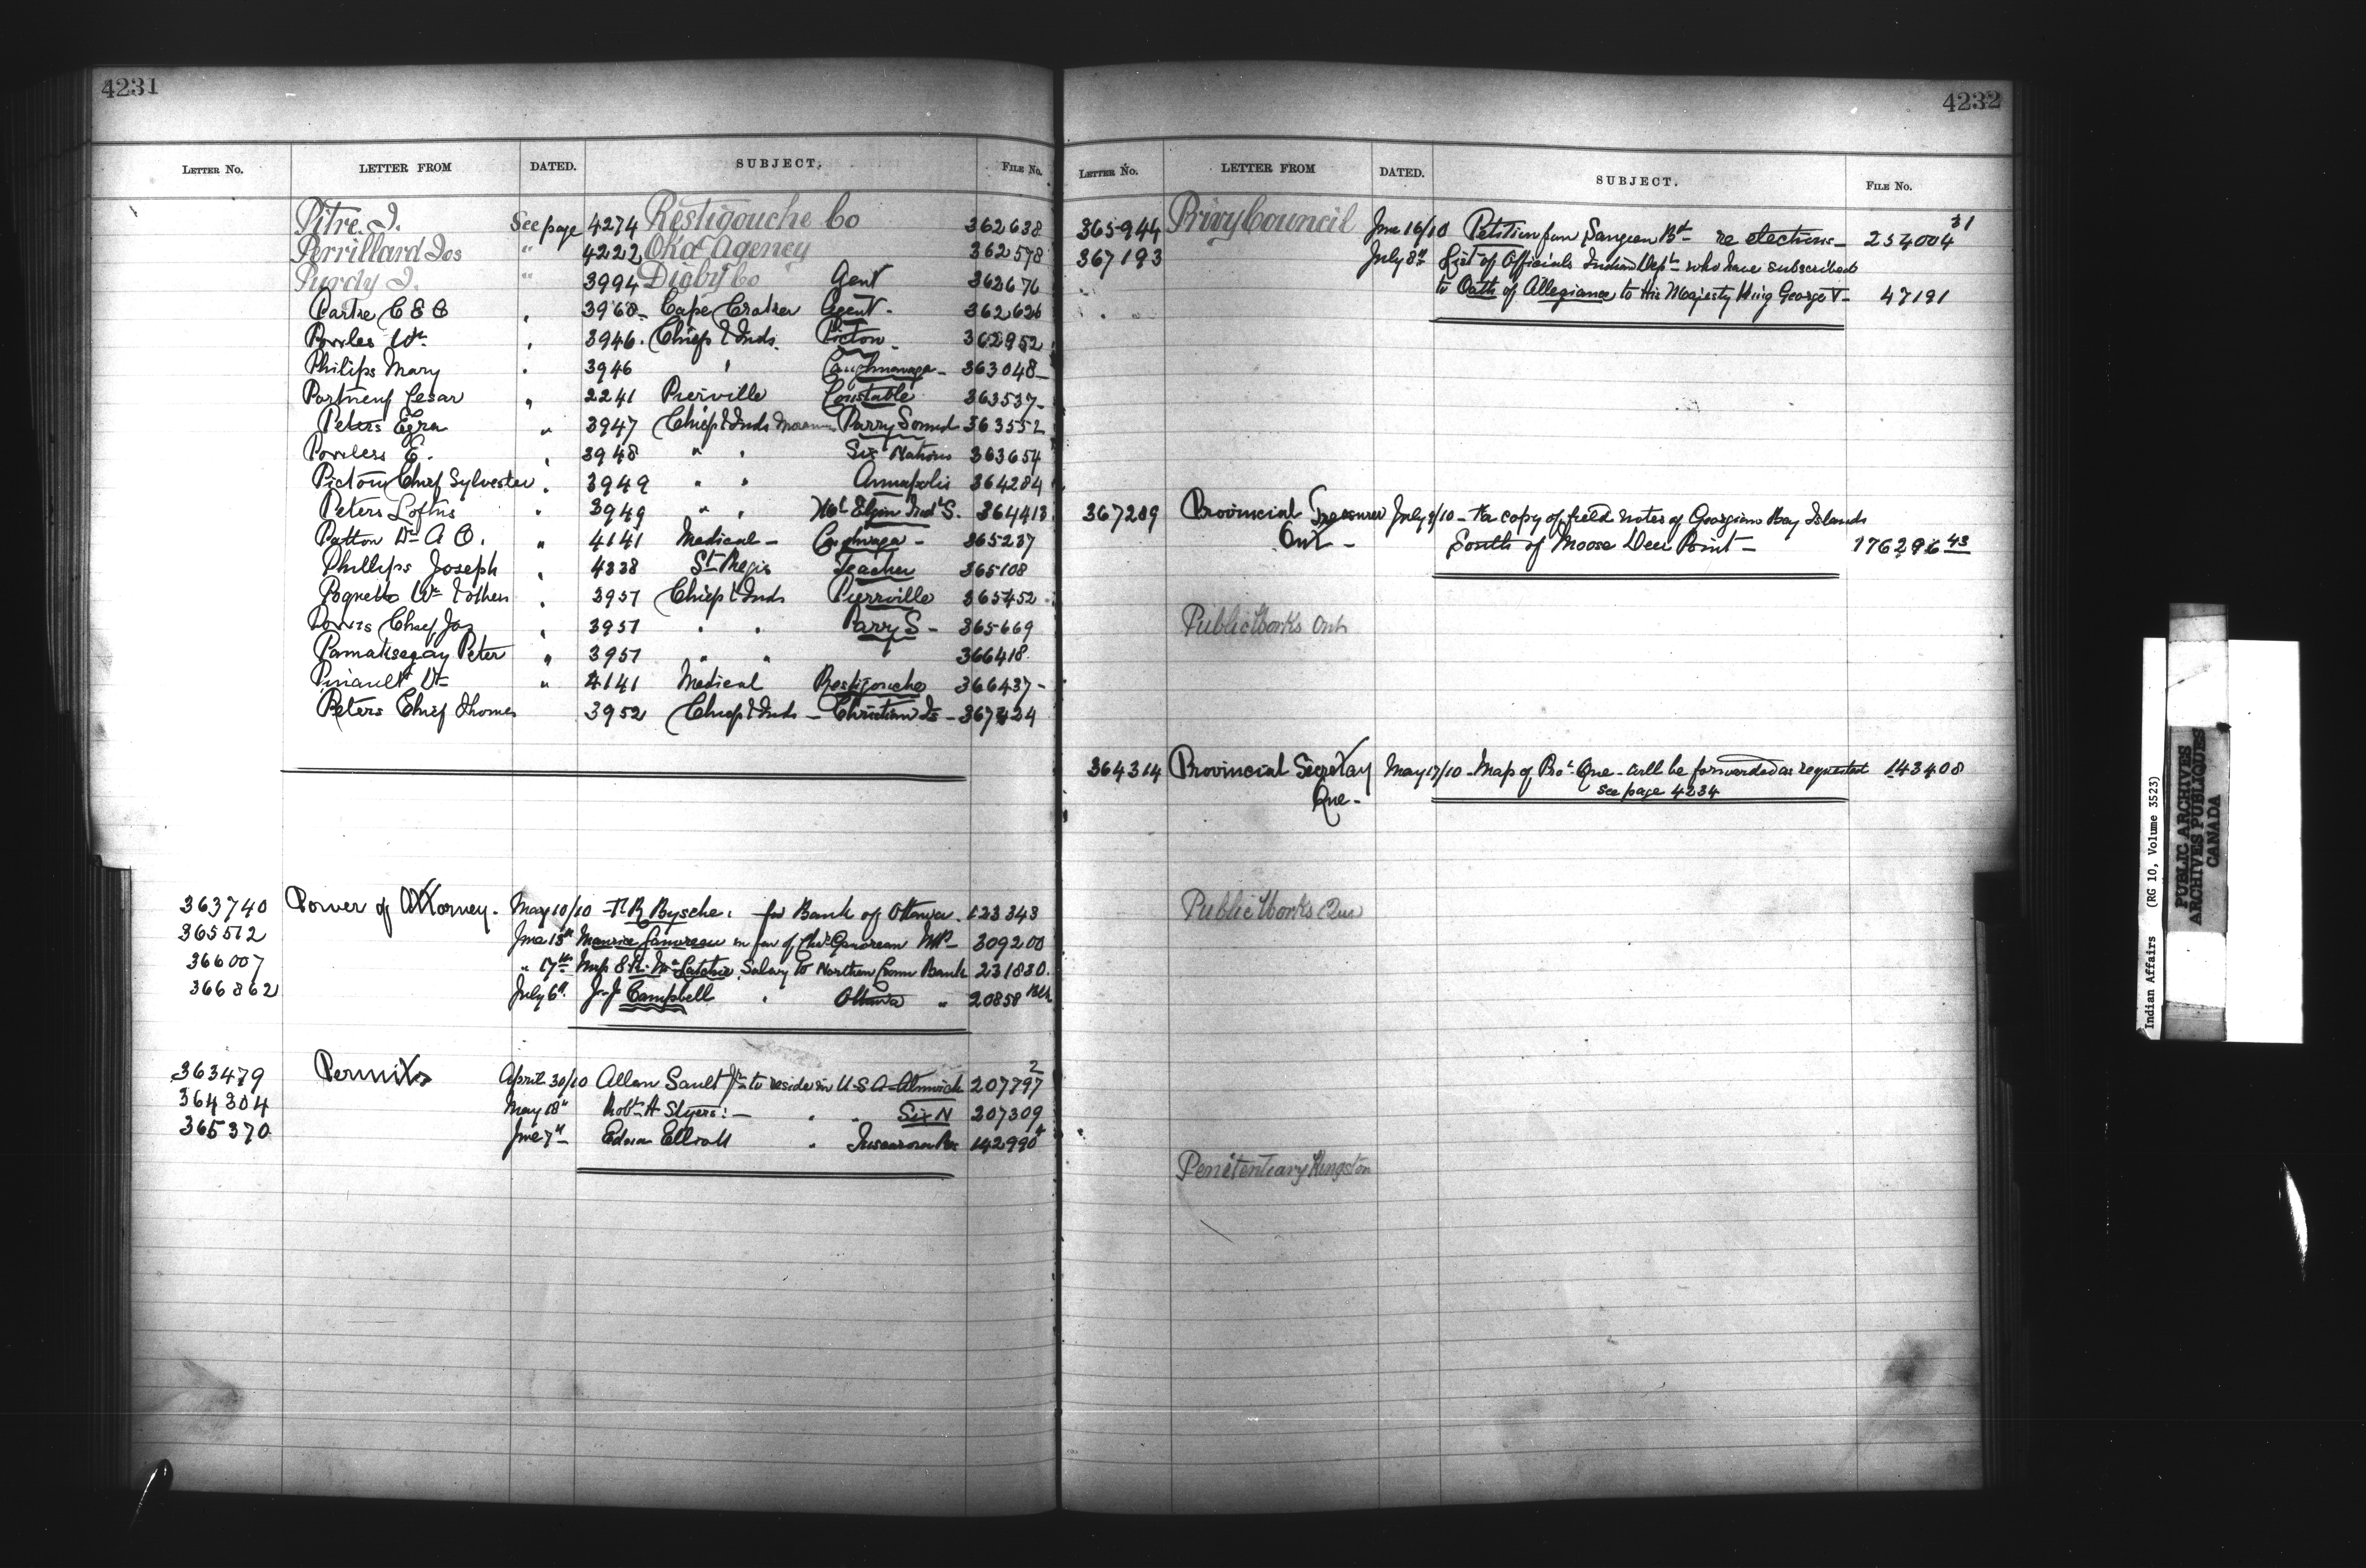 4231
LETTER No. LETTER FROM DATED. SUBJECT. FILE No.
Pitre. J. See page 4274 Restigouche Co 362638
Perrillard Jos " 4222 Oka Agency 362578
Purdy J. " 3994 Digby Co Agent 362676
C E E 3960 Cape Croker Agent - 362626
Powles Wm 3946. Chiefs & Inds. Picton - 362952
Philips Mary 3946 " Caughnawaga - 363048
Portneuf Cesar " 2241 Pierville Constable 363537
Peters Ezra " 3947 Chiefs & Inds Parry Sound 363552
Powless E. 3948 " " Six Nations 363654
Pictou Chief Sylvester 3949 " " Annapolis 364284
Peters Loftus " 3949 " " Mt Elgin Ind'l S. 364413
Patton Dr A O. " 4141 Medical - Caughnawaga - 365237
Phillips Joseph 4338 St Regis Teacher 365108
Wm & others 3951 Chiefs & Inds Pierrville 365452
Chief Jas 3951 " " Parry S - 365669
Pamatisegay Peter " 3951 " " 366418
Pinault Dr " 4141 Medical Restigouche 366437 -
Peters Chief Thomas 3952 Chiefs & Inds - Christian Is - 367424
363740 Power of Attorney. May 10/10 T. R. Bysche. for Bank of Ottawa. 123343
365512 June 13th Maurice Ganoreau in fav of Chas Ganoreau MP - 309200
366007 " 17th Salary to Northern Crown Bank 231830.
366862 July 6th J. J Campbell " Ottawa " 20858
363479 Permits April 30/10 Allan Sault Jr to reside in U S A Alnwick 207797 2
364304 May 18th Robt H Styers: - " " Six N 207309
365370 June 7th Edwin Elliott " Tuscarora Res 142990 4
4232
LETTER No. LETTER FROM DATED. SUBJECT. FILE No.
365944 Privy Council June 16/10 Petition from Saugeen Bd - re elections - 254004 31
367193 July 8th List of Officials Indian Dept who have subscribed
to Oath of Allegiance to His Majesty King George V - 47191
367289 Provincial Treasurer July 9/10 - For copy of field notes of Georgian Bay Islands
Ont - South of Moose Deer Point - 176296 43
Public Works Ont
364314 Provincial Secretary May 17/10 - Map of Pro. Que - will be forwarded as requested 143408
Que - see page 4234
Public Works Que
Penitentiary Kingston
Indian Affairs (RG 10, Volume 3523)
PUBLIC ARCHIVES
ARCHIVES PUBLIQUES
CANADA